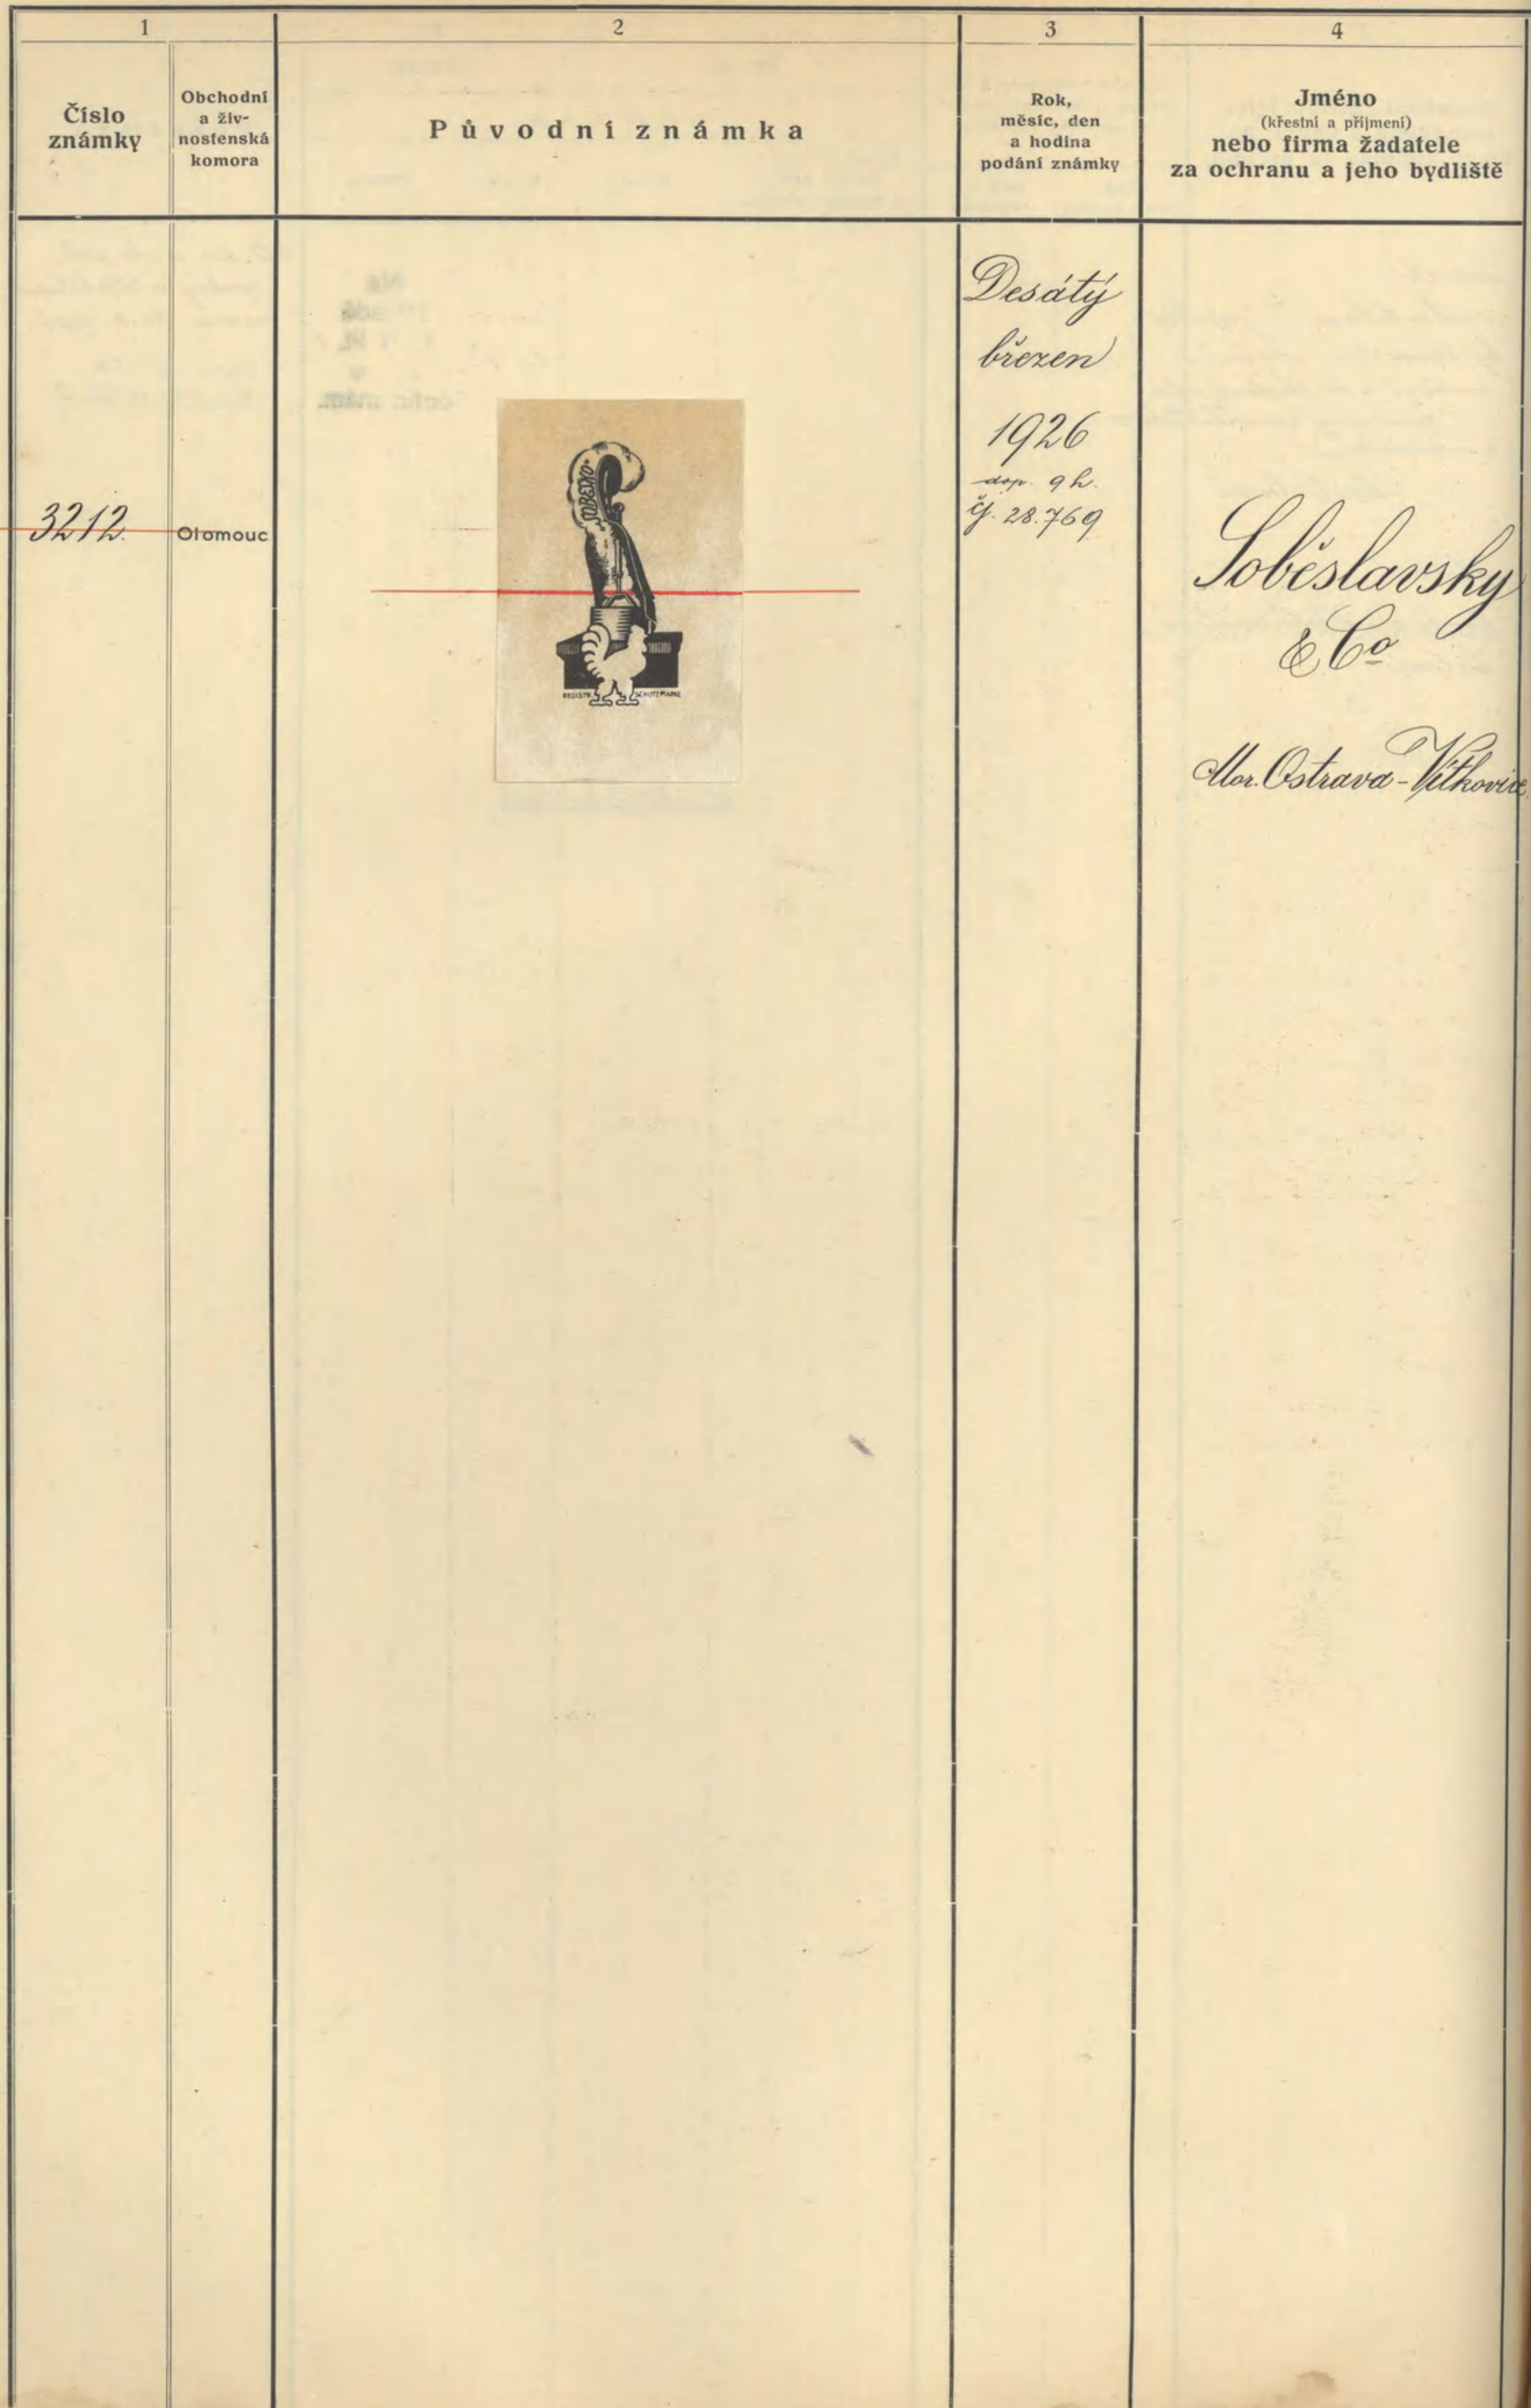 1
2
3
4
Číslo
známky
Obchodní
a živ-
nostenská
komora
Původní známka
Rok,
měsíc, den
a hodina
podání známky
Jméno
(křestní a příjmení)
nebo firma žadatele
za ochranu a jeho bydliště
3212.
Olomouc
SOBESKO
REGISTR. SCHUTZMARKE
Desátý
březen
1926
dop. 9 h.
čj. 28.769
Soběslavsky
& Co
Mor. Ostrava-Vítkovice